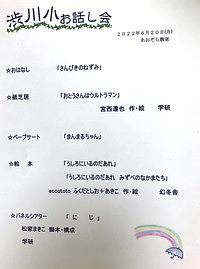 渋川小お話し会
2022年6月20日(月)
あおぞら教室
☆おはなし 「さんびきのねずみ」
☆紙芝居 「おとうさんはウルトラマン」
宮西達也 作・絵 学研
☆ペープサート 「まんまるちゃん」
☆絵本 「うしろにいるのだあれ」
「うしろにいるのだあれ みずべのなかまたち」
accototo ふくだとしお+あきこ 作・絵 幻冬舎
☆パネルシアター 「にじ」
松家まきこ 脚本・構成
学研